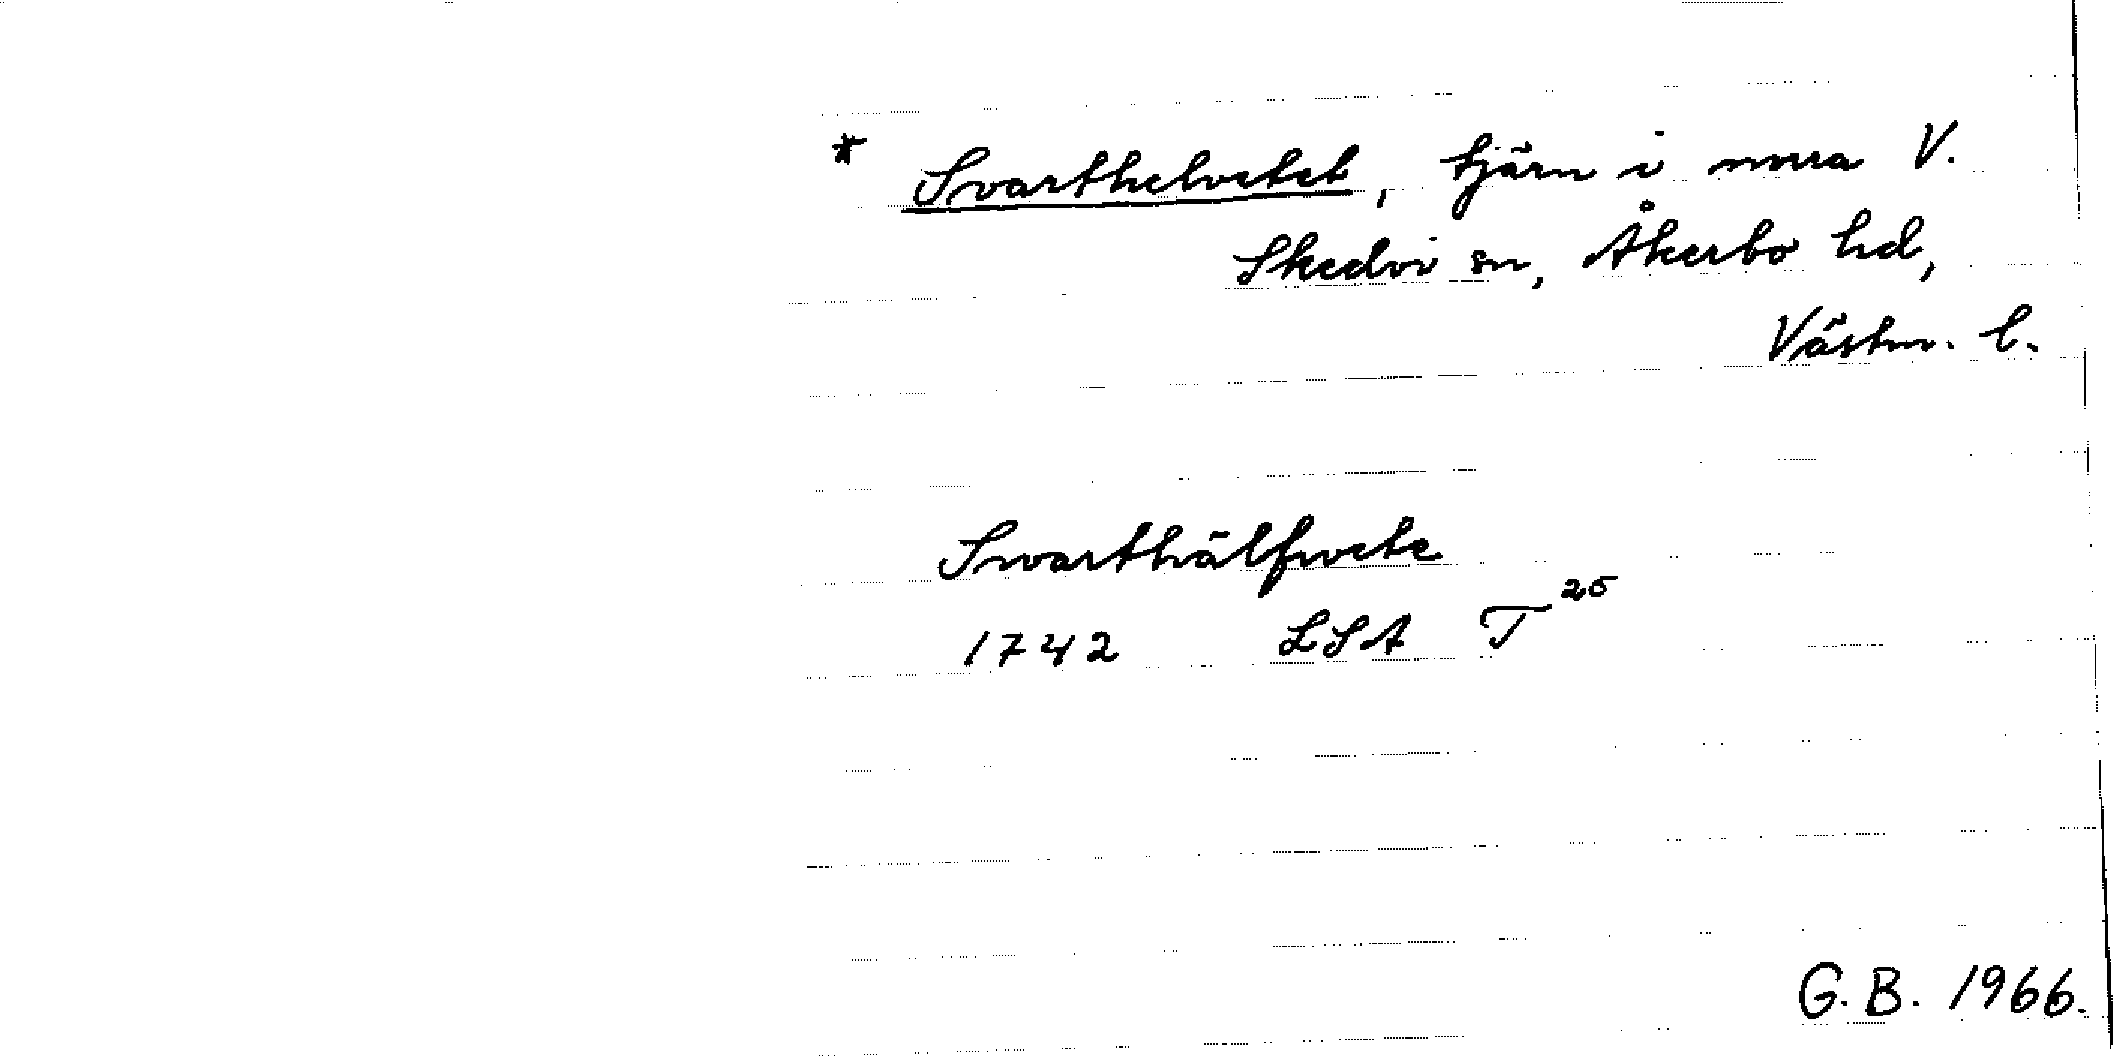 * Svarthelvetet, tjärn i norra V.
Skedvi sn, Åkerbo hd,
Västm. l.
Svarthälfvete
1742 LSA T²⁵
G. B. 1966.